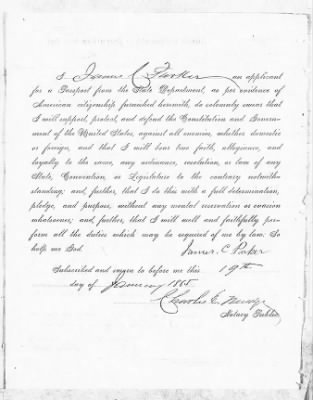 I James C Parker an applicant
for a Passport from the State Department, as per evidence of
American citizenship furnished herewith, do solemnly swear that
I will support, protect, and defend the Constitution and Govern-
ment of the United States, against all enemies, whether domestic
or foreign, and that I will bear true faith, allegiance, and
loyalty to the same, any ordinance, resolution, or law of any
State, Convention, or Legislature to the contrary notwith-
standing; and, further, that I do this with a full determination,
pledge, and purpose, without any mental reservation or evasion
whatsoever; and, further, that I will well and faithfully per-
form all the duties which may be required of me by law. So
help me God.
James. C Parker
Subscribed and sworn to before me this 19th
day of January
Charles E
Notary Public